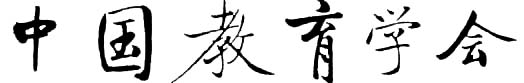 中国教育学会